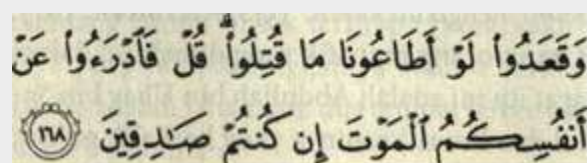 وَقَعَدُوا۟ لَوْ أَطَاعُونَا مَا قُتِلُوا۟ ۗ قُلْ فَٱدْرَءُوا۟ عَنْ
أَنفُسِكُمُ ٱلْمَوْتَ إِن كُنتُمْ صَـٰدِقِينَ ﴿١٦٨﴾